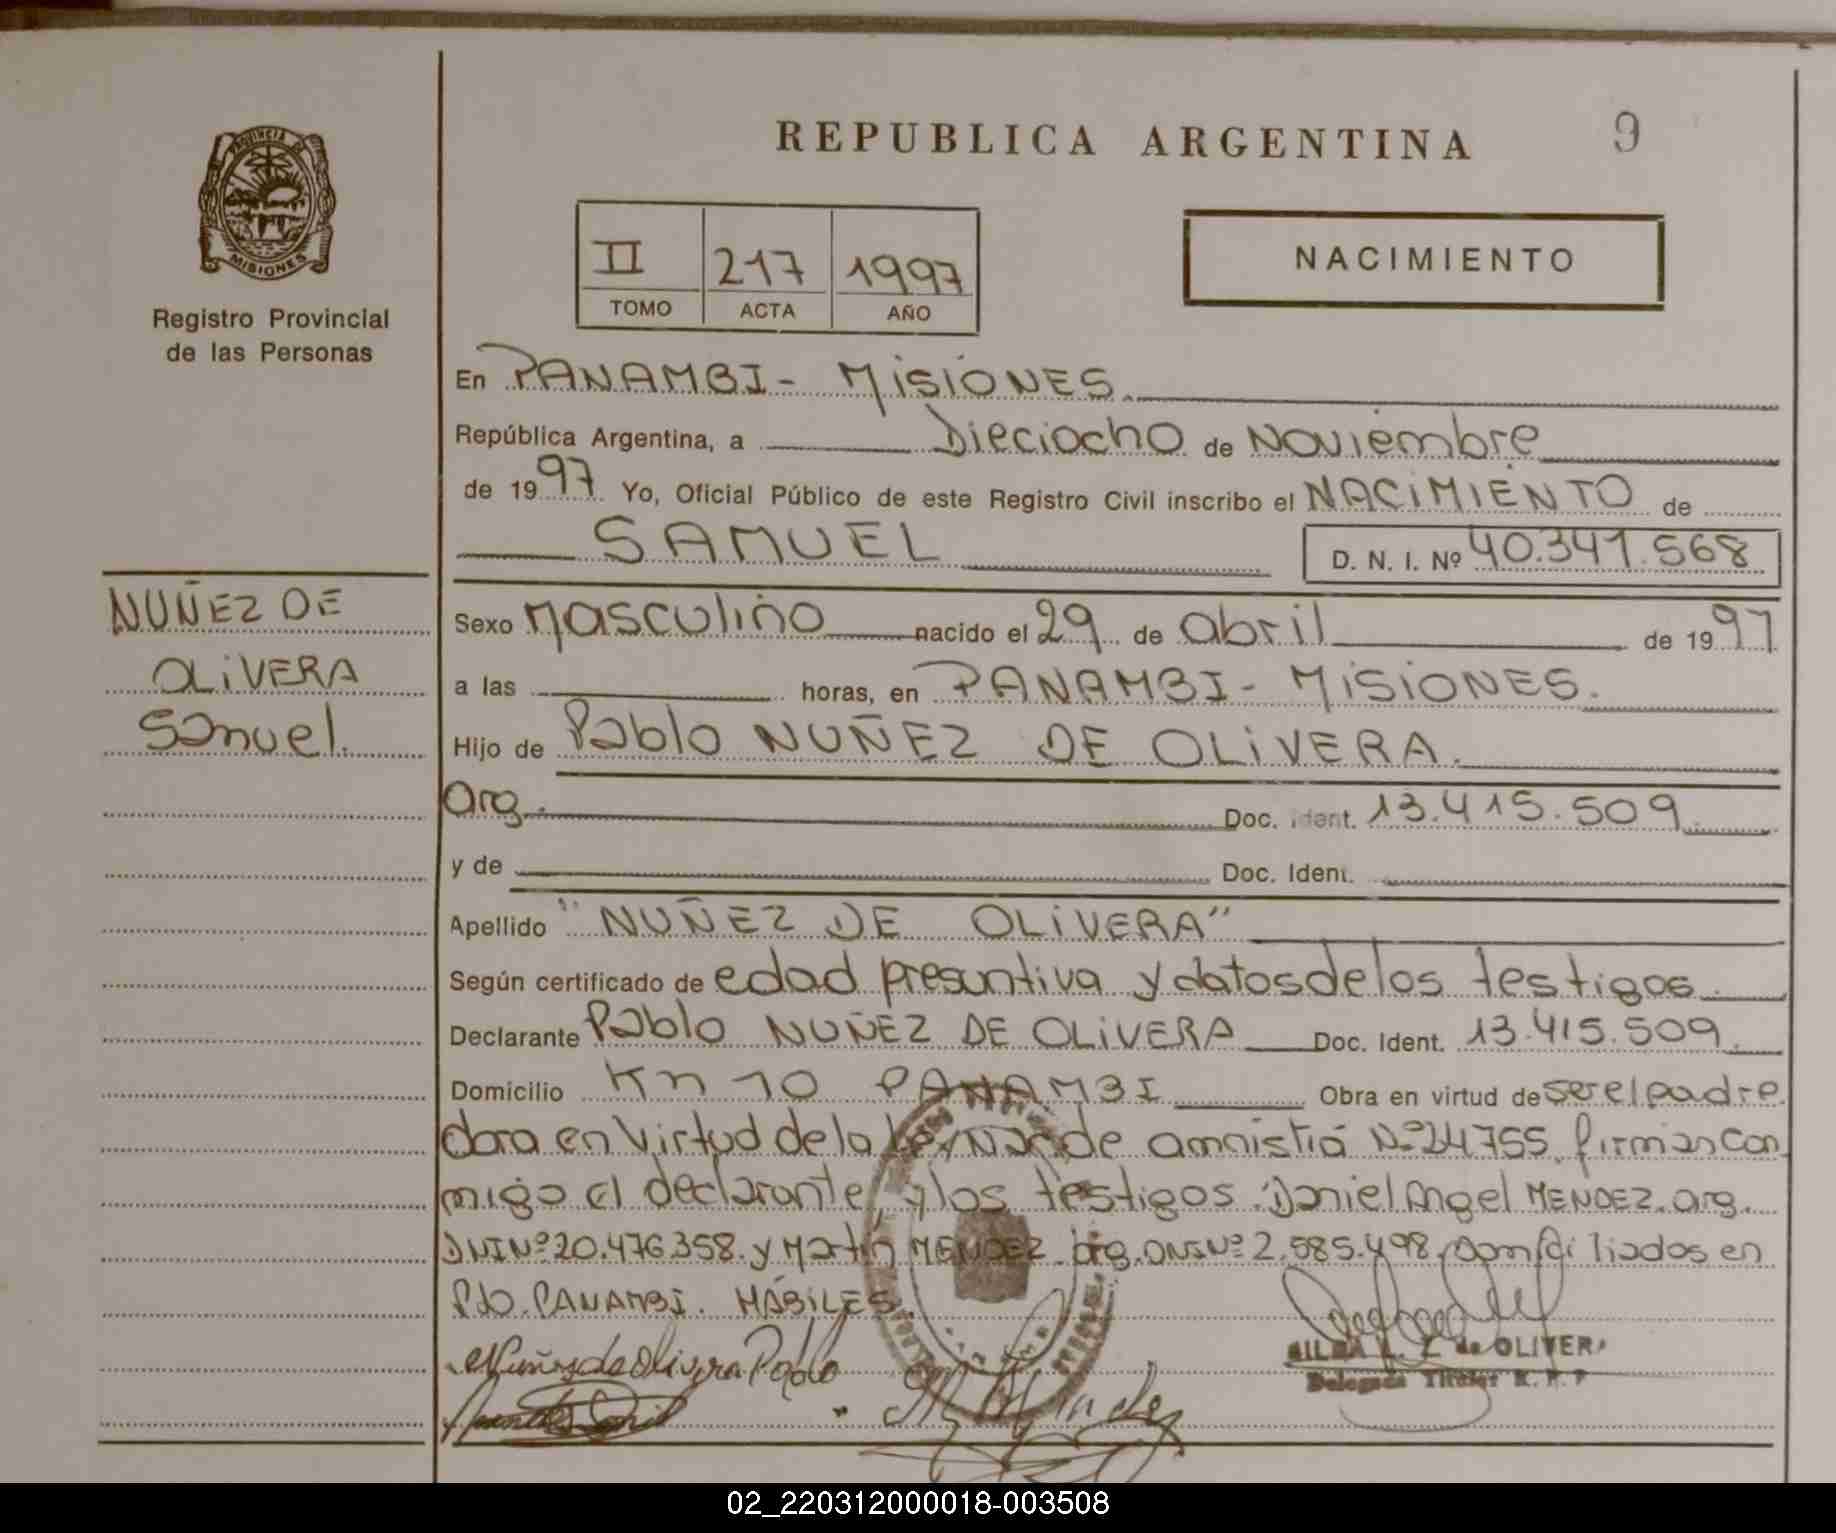 REPUBLICA ARGENTINA
9
PROVINCIA DE
MISIONES
Registro Provincial
de las Personas
II 217 1997
TOMO ACTA AÑO
NACIMIENTO
En PANAMBI - MISIONES.
República Argentina, a Dieciocho de Noviembre
de 1997 Yo, Oficial Público de este Registro Civil inscribo el NACIMIENTO de
SAMUEL D. N. I. Nº 40.341.568
NUÑEZ DE
OLIVERA
Samuel.
Sexo Masculino nacido el 29 de abril de 1997
a las horas, en PANAMBI - MISIONES.
Hijo de Pablo NUÑEZ DE OLIVERA.
arg. Doc. Ident. 13.415.509
y de Doc. Ident.
Apellido "NUÑEZ DE OLIVERA"
Según certificado de edad presuntiva y datos de los testigos.
Declarante Pablo NUÑEZ DE OLIVERA Doc. Ident. 13.415.509
Domicilio Km 10 PANAMBI Obra en virtud de ser el padre
dora en Virtud de la Ley Nac de amnistiá Nº 24755, firman con
migo el declarante, y los testigos. Daniel Angel MENDEZ. arg.
DNI Nº 20.476.358. y Martín MENDEZ arg. DNI Nº 2.585.498, domiciliados en
Pdo. PANAMBI. HÁBILES.
Nuñez de Olivera Pablo
L. Z. de OLIVERA
Delegada Titular R. P. P
02_220312000018-003508